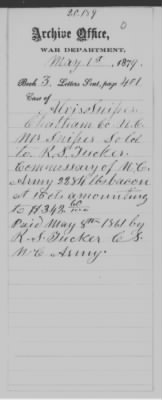 20.189
Archive Office,
WAR DEPARTMENT,
May 1st, 1879.
Book 3, Letters Sent, page 401
Case of
Alvis Snipes
Chatham Co N.C.
Mr Snipes sold
to R. S. Tucker.
Commissary of N.C.
Army 2284 lbs bacon
at 15cts amounting
to $342 60/100
Paid May 8th 1861 by
R. S. Tucker C S
N C Army.